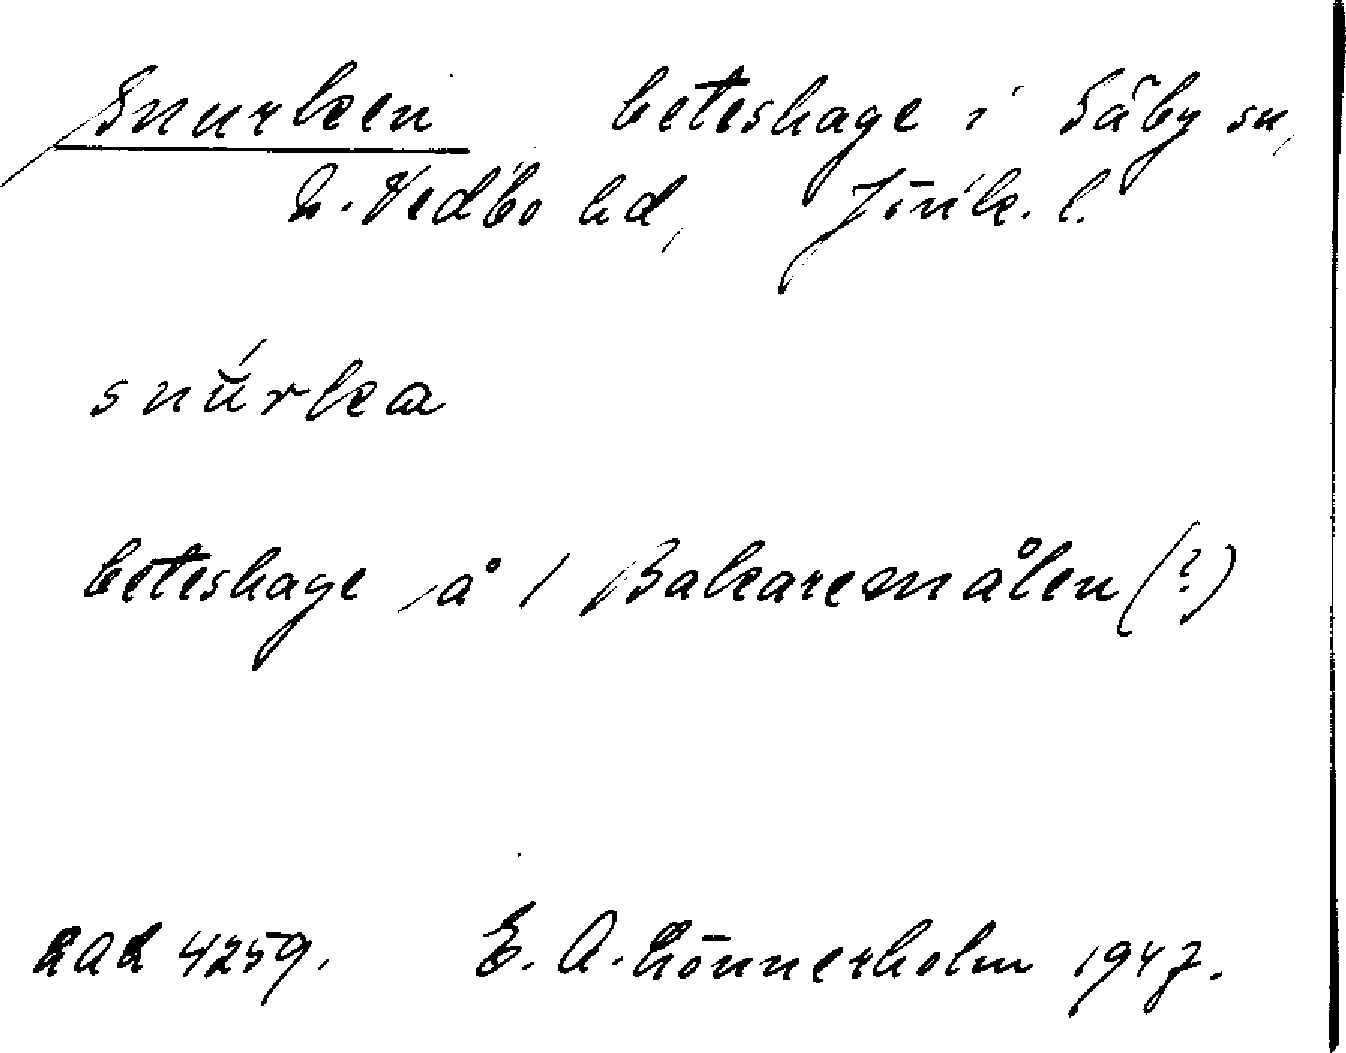 Snurken beteshage i Säby sn,
N. Vedbo hd, Jönk. l.
snúrka
beteshage å 1 Bakaremålen (?)
LAL 4259. E. A. Lönnerholm 1947.